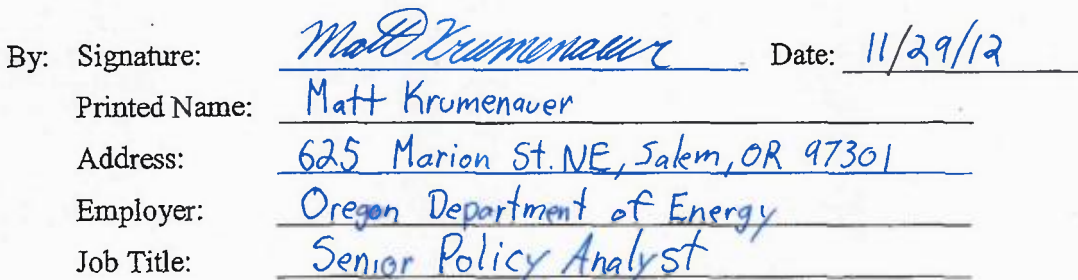 By: Signature: Matt Krumenauer Date: 11/29/12
Printed Name: Matt Krumenauer
Address: 625 Marion St. NE, Salem, OR 97301
Employer: Oregon Department of Energy
Job Title: Senior Policy Analyst